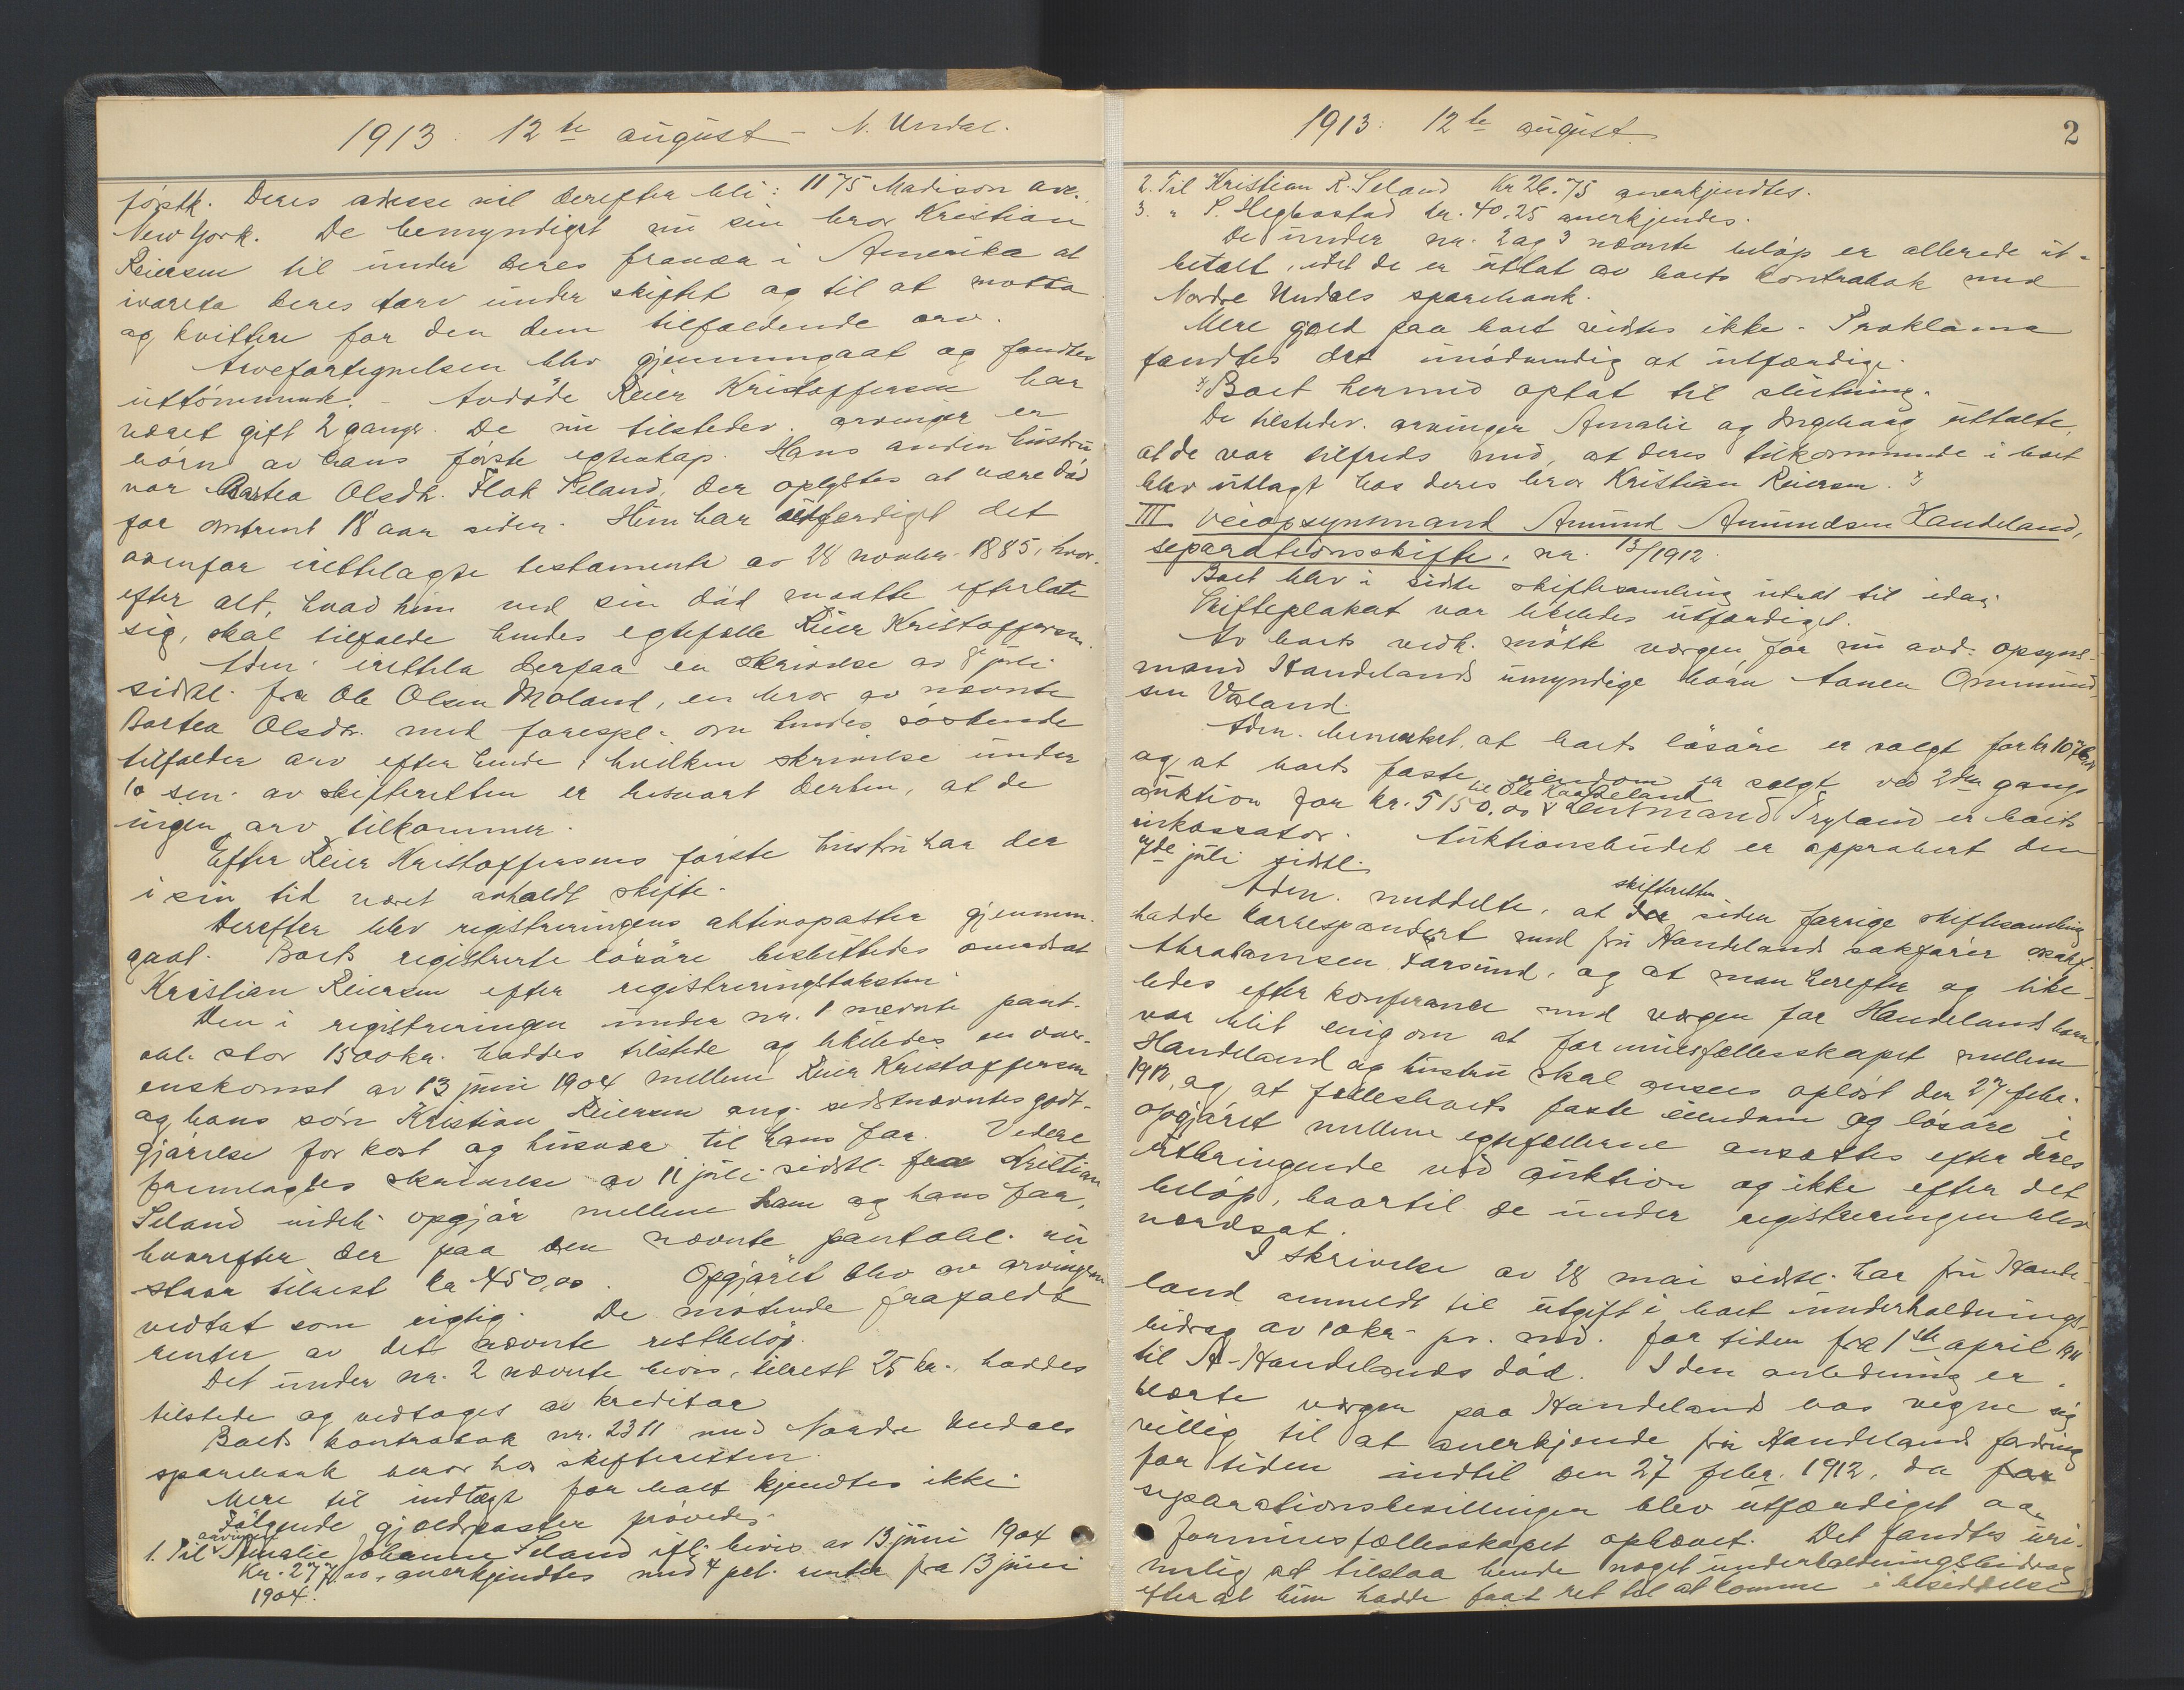 1913. 12te august - N. Undal.
førstk. Deres adresse vil derefter bli: 1175 Madison ave.
New York. De bemyndiget nu sin bror Kristian
Reiersen til under deres fravær i Amerika at
ivareta deres tarv under skiftet og til at motta
og kvittere for den dem tilfaldende arv.
Arvefortegnelsen blev gjennemgaat og fandtes
uttømmende. - Avdøde Reier Kristoffersen har
været gift 2 ganger. De nu tilstedev. arvinger er
børn av hans første egteskap. Hans anden hustru
var Bartea Olsdtr. Flak Seland, der oplystes at være død
for omtrent 18 aar siden. Hun har utfærdiget det
ovenfor irettelagte testamente av 28 novbr. 1885, hvor-
efter alt, hvad hun ved sin død maatte efterlate
sig, skal tilfalde hendes egtefælle Reier Kristoffersen.
Adm. irettela derpaa en skrivelse av 8de juli
sidstl. fra Ole Olsen Moland, en bror av nævnte
Bartea Olsdtr. med forespl. om hendes søskende
tilfalder arv efter hende, hvilken skrivelse under
10 sm. av skifteretten er besvart derhen, at de
ingen arv tilkommer.
Efter Reier Kristoffersens første hustru har der
i sin tid været avholdt skifte.
Derefter blev registreringens aktivaposter gjennem-
gaat. Boets registrerte løsøre besluttedes overdrat
Kristian Reiersen efter registreringstaksten.
Den i registreringen under nr. 1 nævnte pant-
obl. stor 1500 kr. haddes tilstede og likeledes en over-
enskomst av 13 juni 1904 mellem Reier Kristoffersen
og hans søn Kristian Reiersen ang. sidstnævntes godt-
gjørelse for kost og husvær til hans far. Videre
fremlagdes skrivelse av 11 juli sidstl. fra Kristian
Seland vedk. opgjør mellem ham og hans far,
hvorefter der paa den nævnte pantobl. nu
staar tilrest kr. 450,00. Opgjøret blev av arvingerne
vedtat som rigtig. De møtende frafaldt
renter av det nævnte restbeløp.
Det under nr. 2 nævnte bevis, tilrest 25 kr., haddes
tilstede og vedtoges av kreditor
Boets kontrabok nr. 2311 med Nordre Undals
sparebank beror hos skifteretten.
Mere til indtægt for boet kjendtes ikke.
Følgende gjældsposter prøvedes.
1. Til arvingen Amalie Johanne Seland ifl. bevis av 13. juni 1904
kr. 277,00, anerkjendtes med 4 pct. renter fra 13 juni
1904.
1913. 12te august.
2
2. Til Kristian R. Seland kr 26.75 anerkjendtes.
3. " P. Heghostad kr. 40.25 anerkjendes.
De under nr. 2 og 3 nævnte beløp er allerede ut-
betalt, idet de er uttat av boets kontrabok med
Nordre Undals sparebank.
Mere gjæld paa boet vistes ikke. Proklama
fandtes det unødvendig at utfærdige.
Boet hermed optat til slutning.
De tilstedev. arvinger Amalie og Ingeborg uttalte,
at de var tilfreds med, at deres tilkommende i boet
blev utlagt hos deres bror Kristian Reiersen.
III Veiopsynsmand Amund Amundsen Handeland,
separationsskifte, nr. 13/1912.
Boet blev i sidste skiftesamling utsat til idag.
Skifteplakat var likeledes utfærdiget.
Av boets vedk. møtte vergen for nu avd. opsyns-
mand Handelands umyndige børn Aanen Ommund-
sen Valand.
Adm. bemerket, at boets løsøre er solgt for kr 107
og at boets faste eiendom er solgt ved 2den gangs
auktion for kr. 5150,00 til Ole Kaa Deland Lensmand Tryland er boets
inkassator. Auktionsbudet er approbert den
7de juli sidstl.
Adm. meddelte, at skifteretten siden forrige skiftesamling
hadde korrespondert med fru Handelands sakfører
Abrahamsen Farsund, og at man herefter og like-
ledes efter konferance med vergen for Handelands børn
var blit enig om at formuesfællesskapet mellem
Handeland og hustru skal ansees opløst den 27. febr.
1912, og at fællesboets faste eiendom og løsøre i
opgjøret mellem egtefællerne ansættes efter deres
utbringende ved auktion og ikke efter det
beløp, hvortil de under registreringen blev
værdsat.
I skrivelse av 28 mai sidstl. har fru Hande-
land anmeldt til utgift i boet underholdnings-
bidrag av 10 kr. pr. md. for tiden fra 1ste april 1911
til A. Handelands død. I den anledning er-
klærte vergen paa Handelands bos vegne sig
villig til at anerkjende fru Handelands fordring
for tiden indtil den 27 febr. 1912, da
separationsbevillingen blev utfærdiget og
formuesfællesskapet ophævet. Det fandtes uri-
melig at tilstaa hende noget underholdningsbidrag
efter at hun hadde faat ret til at komme i besiddelse